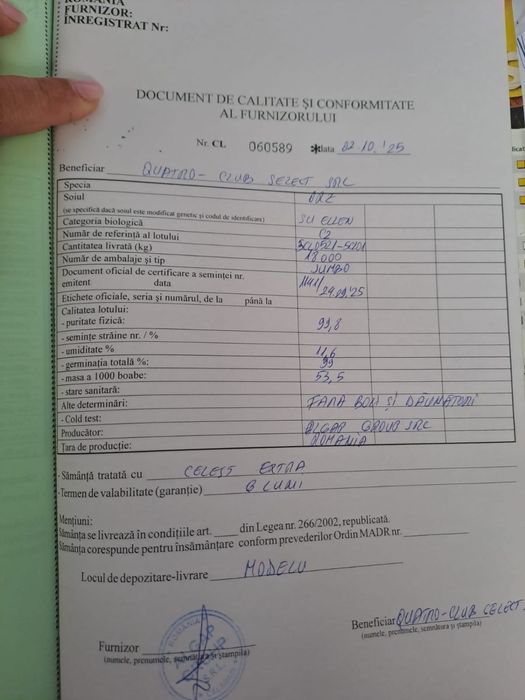 ROMÂNIA
FURNIZOR:
ÎNREGISTRAT Nr:
DOCUMENT DE CALITATE ȘI CONFORMITATE
AL FURNIZORULUI
Nr. CL 060589 data 02.10.'25
Beneficiar QUATRO-CLUB SELECT SRL
Specia ORZ
Soiul SU ELLEN
(se specifică dacă soiul este modificat genetic și codul de identificare)
Categoria biologică C2
Număr de referință al lotului
Cantitatea livrată (kg) 18.000
Număr de ambalaje și tip JUMBO
Document oficial de certificare a seminței nr.
emitent data 29.09.'25
Etichete oficiale, seria și numărul, de la până la
Calitatea lotului:
- puritate fizică: 99,8
- semințe străine nr. / %
- umiditate % 11,6
- germinația totală %: 99
- masa a 1000 boabe: 53,5
- stare sanitară:
Alte determinări: FARA BOLI ȘI DĂUNATORI
- Cold test:
Producător: GROUP SRL
Tara de producție: ROMANIA
- Sămânță tratată cu CELEST EXTRA
- Termen de valabilitate (garanție) 6 LUNI
Mențiuni:
Sămânța se livrează în condițiile art. din Legea nr. 266/2002, republicată.
Sămânța corespunde pentru însămânțare conform prevederilor Ordin MADR nr.
Locul de depozitare-livrare MODELU
Furnizor
(numele, prenumele, semnătura și ștampila)
Beneficiar QUATRO-CLUB CELECT
(numele, prenumele, semnătura și ștampila)